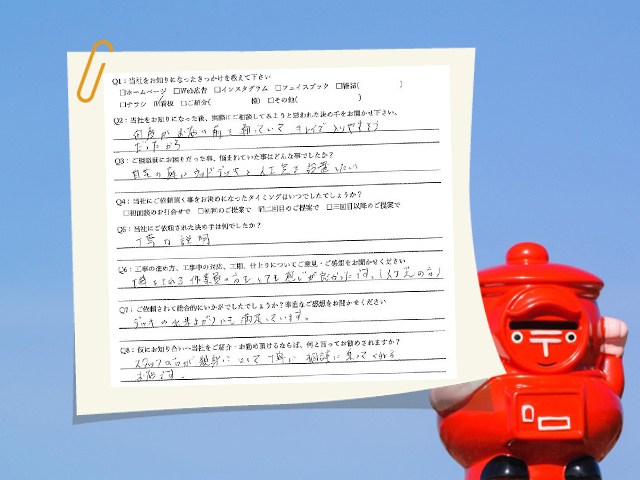 Q1：当社をお知りになったきっかけを教えて下さい
□ホームページ □Web広告 □インスタグラム □フェイスブック □雑誌( )
□チラシ ☑看板 □ご紹介( 様) □その他( )
Q2：当社をお知りになった後、実際にご相談してみようと思われた決め手をお聞かせ下さい。
何度かお店の前を通っていて キレイで入りやすそう
だったから
Q3：ご相談前にお困りだった事、悩まれていた事はどんな事でしたか？
自宅の庭にウッドデッキと人工芝を設置したい
Q4：当社にご依頼頂く事をお決めになったタイミングはいつでしたでしょうか？
□初面談のお打合せで □初回のご提案で ☑二回目のご提案で □三回目以降のご提案で
Q5：当社にご依頼された決め手は何でしたか？
丁寧な説明
Q6：工事の進め方、工事中の対応、工期、仕上りについてご意見・ご感想をお聞かせください
作業員の方もとても感じが良かったです。(人工芝の方)
Q7：ご依頼されて総合的にいかがでしたでしょうか？率直なご感想をお聞かせください
デッキの出来上がりにも満足しています。
Q8：仮にお知り合いへ当社をご紹介・お勧め頂けるならば、何と言ってお勧めされますか？
スタッフの方が親身になって丁寧に相談に乗ってくれる
お店です。